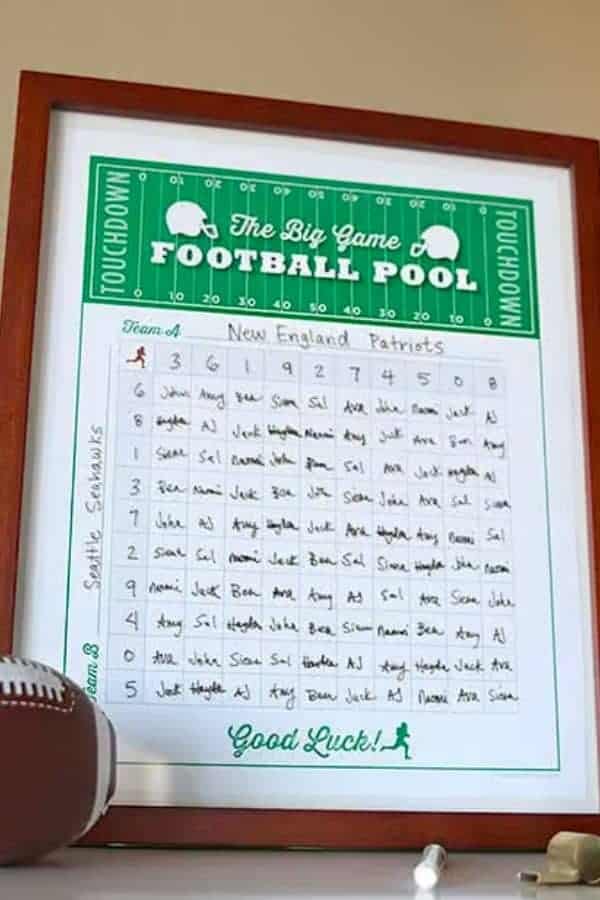 TOUCHDOWN
0 10 20 30 40 50 40 30 20 10 0
The Big Game
FOOTBALL POOL
0 10 20 30 40 50 40 30 20 10 0
TOUCHDOWN
Team A New England Patriots
3 6 1 9 2 7 4 5 0 8
6 John Amy Ben Siena Sal Ava John Naomi Jack AJ
8 Hayden AJ Jack Hayden Naomi Amy Jack Ava Ben Amy
1 Siena Sal Naomi John Ben Sal Ava Jack Hayden AJ
3 Ben Naomi Jack Ben John Siena John Ava Sal Siena
7 John AJ Amy Hayden Jack Ava Hayden Amy Naomi Sal
2 Siena Sal Naomi Jack Ben Sal Siena Hayden John Naomi
9 Naomi Jack Ben Ava Amy AJ Sal Ava Siena John
4 Amy Sal Hayden John Ben Siena Naomi Ben Amy AJ
0 Ava John Siena Sal Hayden AJ Amy Hayden Jack Ava
5 Jack Hayden AJ Amy Ben Jack AJ Naomi Ava Siena
Seattle Seahawks
Team B
Good Luck!